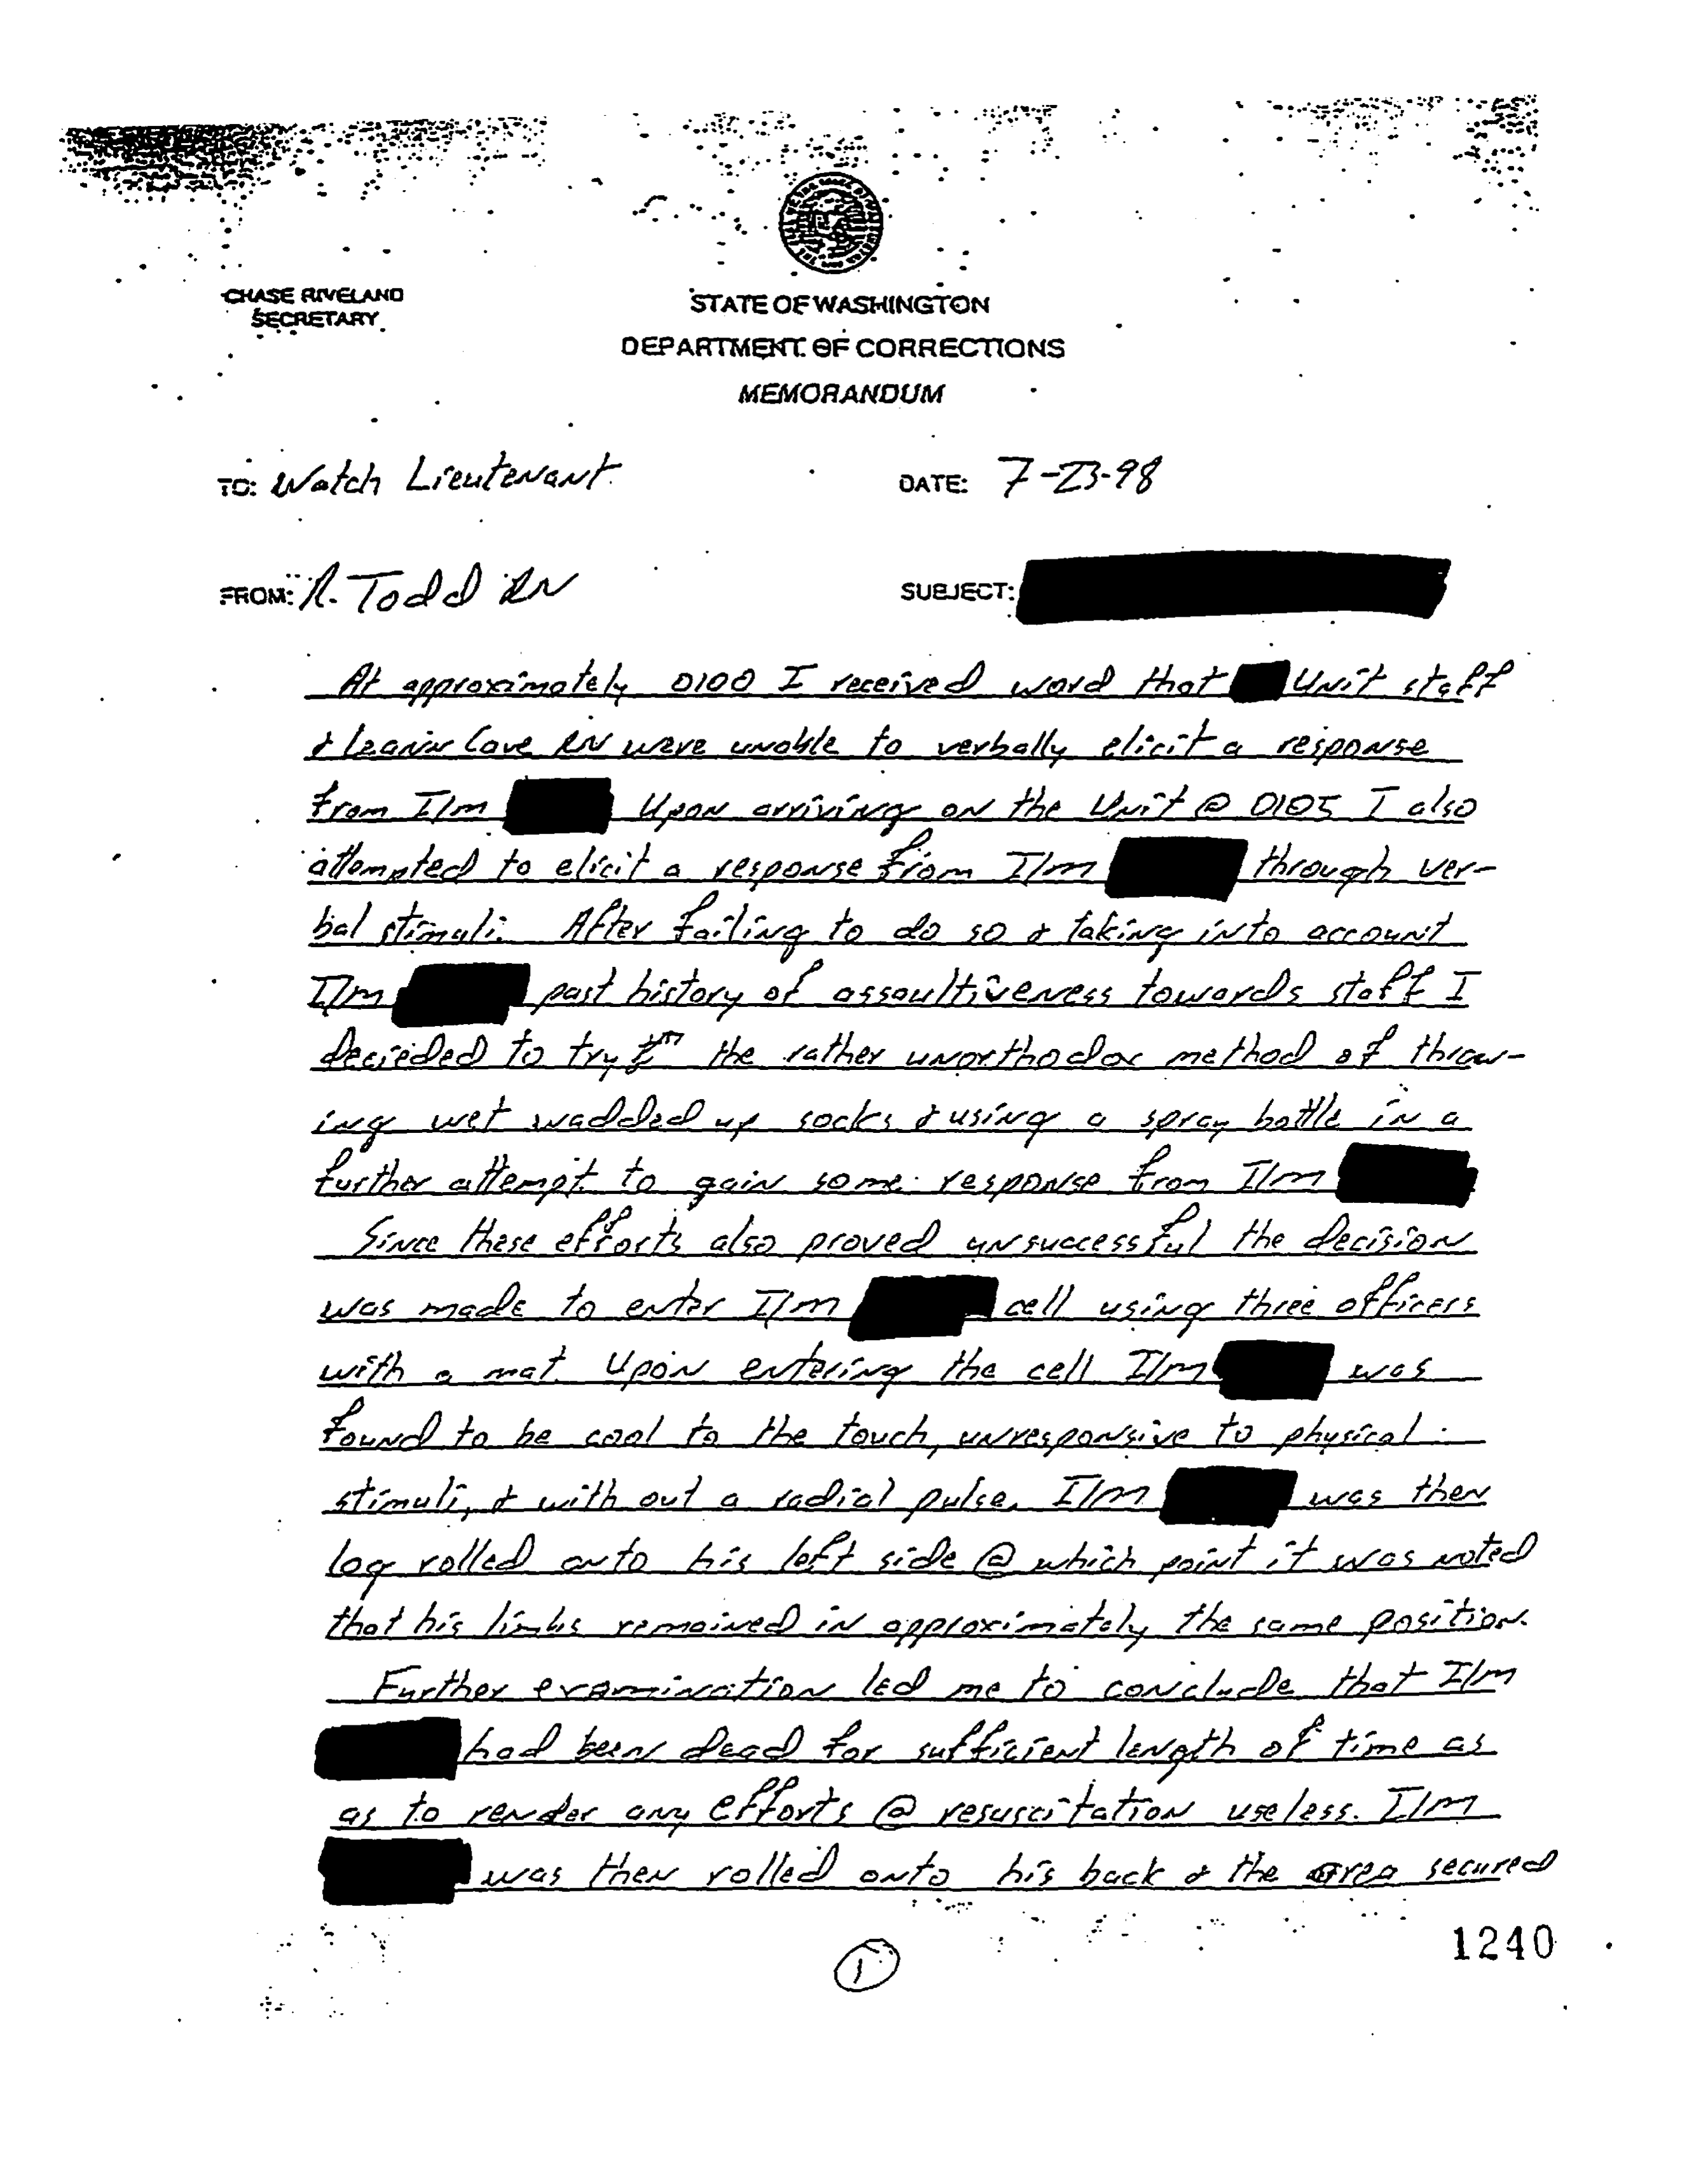 CHASE RIVELAND
SECRETARY
STATE OF WASHINGTON
DEPARTMENT OF CORRECTIONS
MEMORANDUM
TO: Watch Lieutenant
DATE: 7-23-98
FROM: R. Todd RN
SUBJECT:
At approximately 0100 I received word that Unit staff
& Cave RN were unable to verbally elicit a response
from I/m Upon arriving on the Unit @ 0105 I also
attempted to elicit a response from I/m through ver-
bal stimuli. After failing to do so & taking into account
I/m past history of assaultiveness towards staff I
decieded to try the rather unorthodox method of throw-
ing wet wadded up socks & using a spray bottle in a
further attempt to gain some response from I/m
Since these efforts also proved unsuccessful the decision
was made to enter I/m cell using three officers
with a mat. Upon entering the cell I/m was
found to be cool to the touch, unresponsive to physical
stimuli, & with out a radial pulse. I/m was then
log rolled onto his left side @ which point it was noted
that his limbs remained in approximately the same position.
Further examination led me to conclude that I/m
had been dead for sufficient length of time as
as to render any efforts @ resuscitation useless. I/m
was then rolled onto his back & the area secured
1
1240